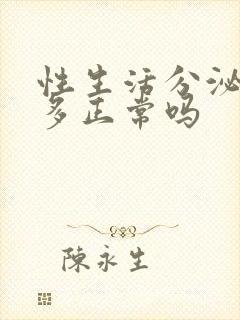 性生活分泌
多正常吗
陳永生